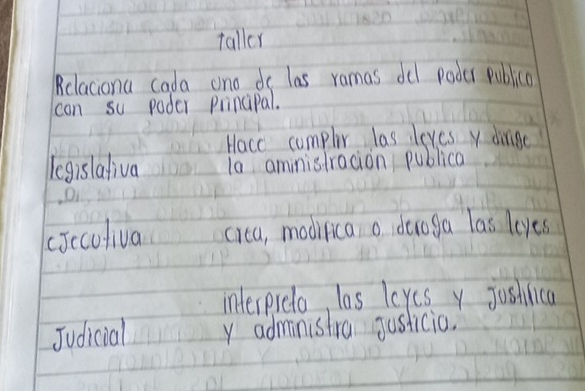 Taller
Relaciona cada una de las ramas del poder publico
con su poder principal.
Hace cumplir las leyes y dirige
legislativa la aministración publica
ejecutiva crea, modifica o deroga las leyes
interpreta las leyes y justifica
Judicial y administra justicia.